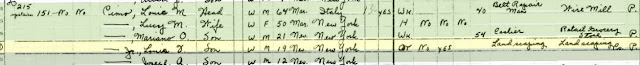 215 151 - No No Pumo, Louis M. Head W M 64 Mar. Italy yes Wk 40 Belt Repair Man Wire Mill P.
— Lucy M. Wife W F 50 Mar. New York H No No No
— Mariano O. Son W M 21 Nev. New York Wk 54 Cashier Retail Grocery Store P.
— Jr, Louis V. Son W M 19 Nev. New York Ot No yes Landscaping Landscaping Co P.
— Joseph A. Son W M 12 Nev. New York